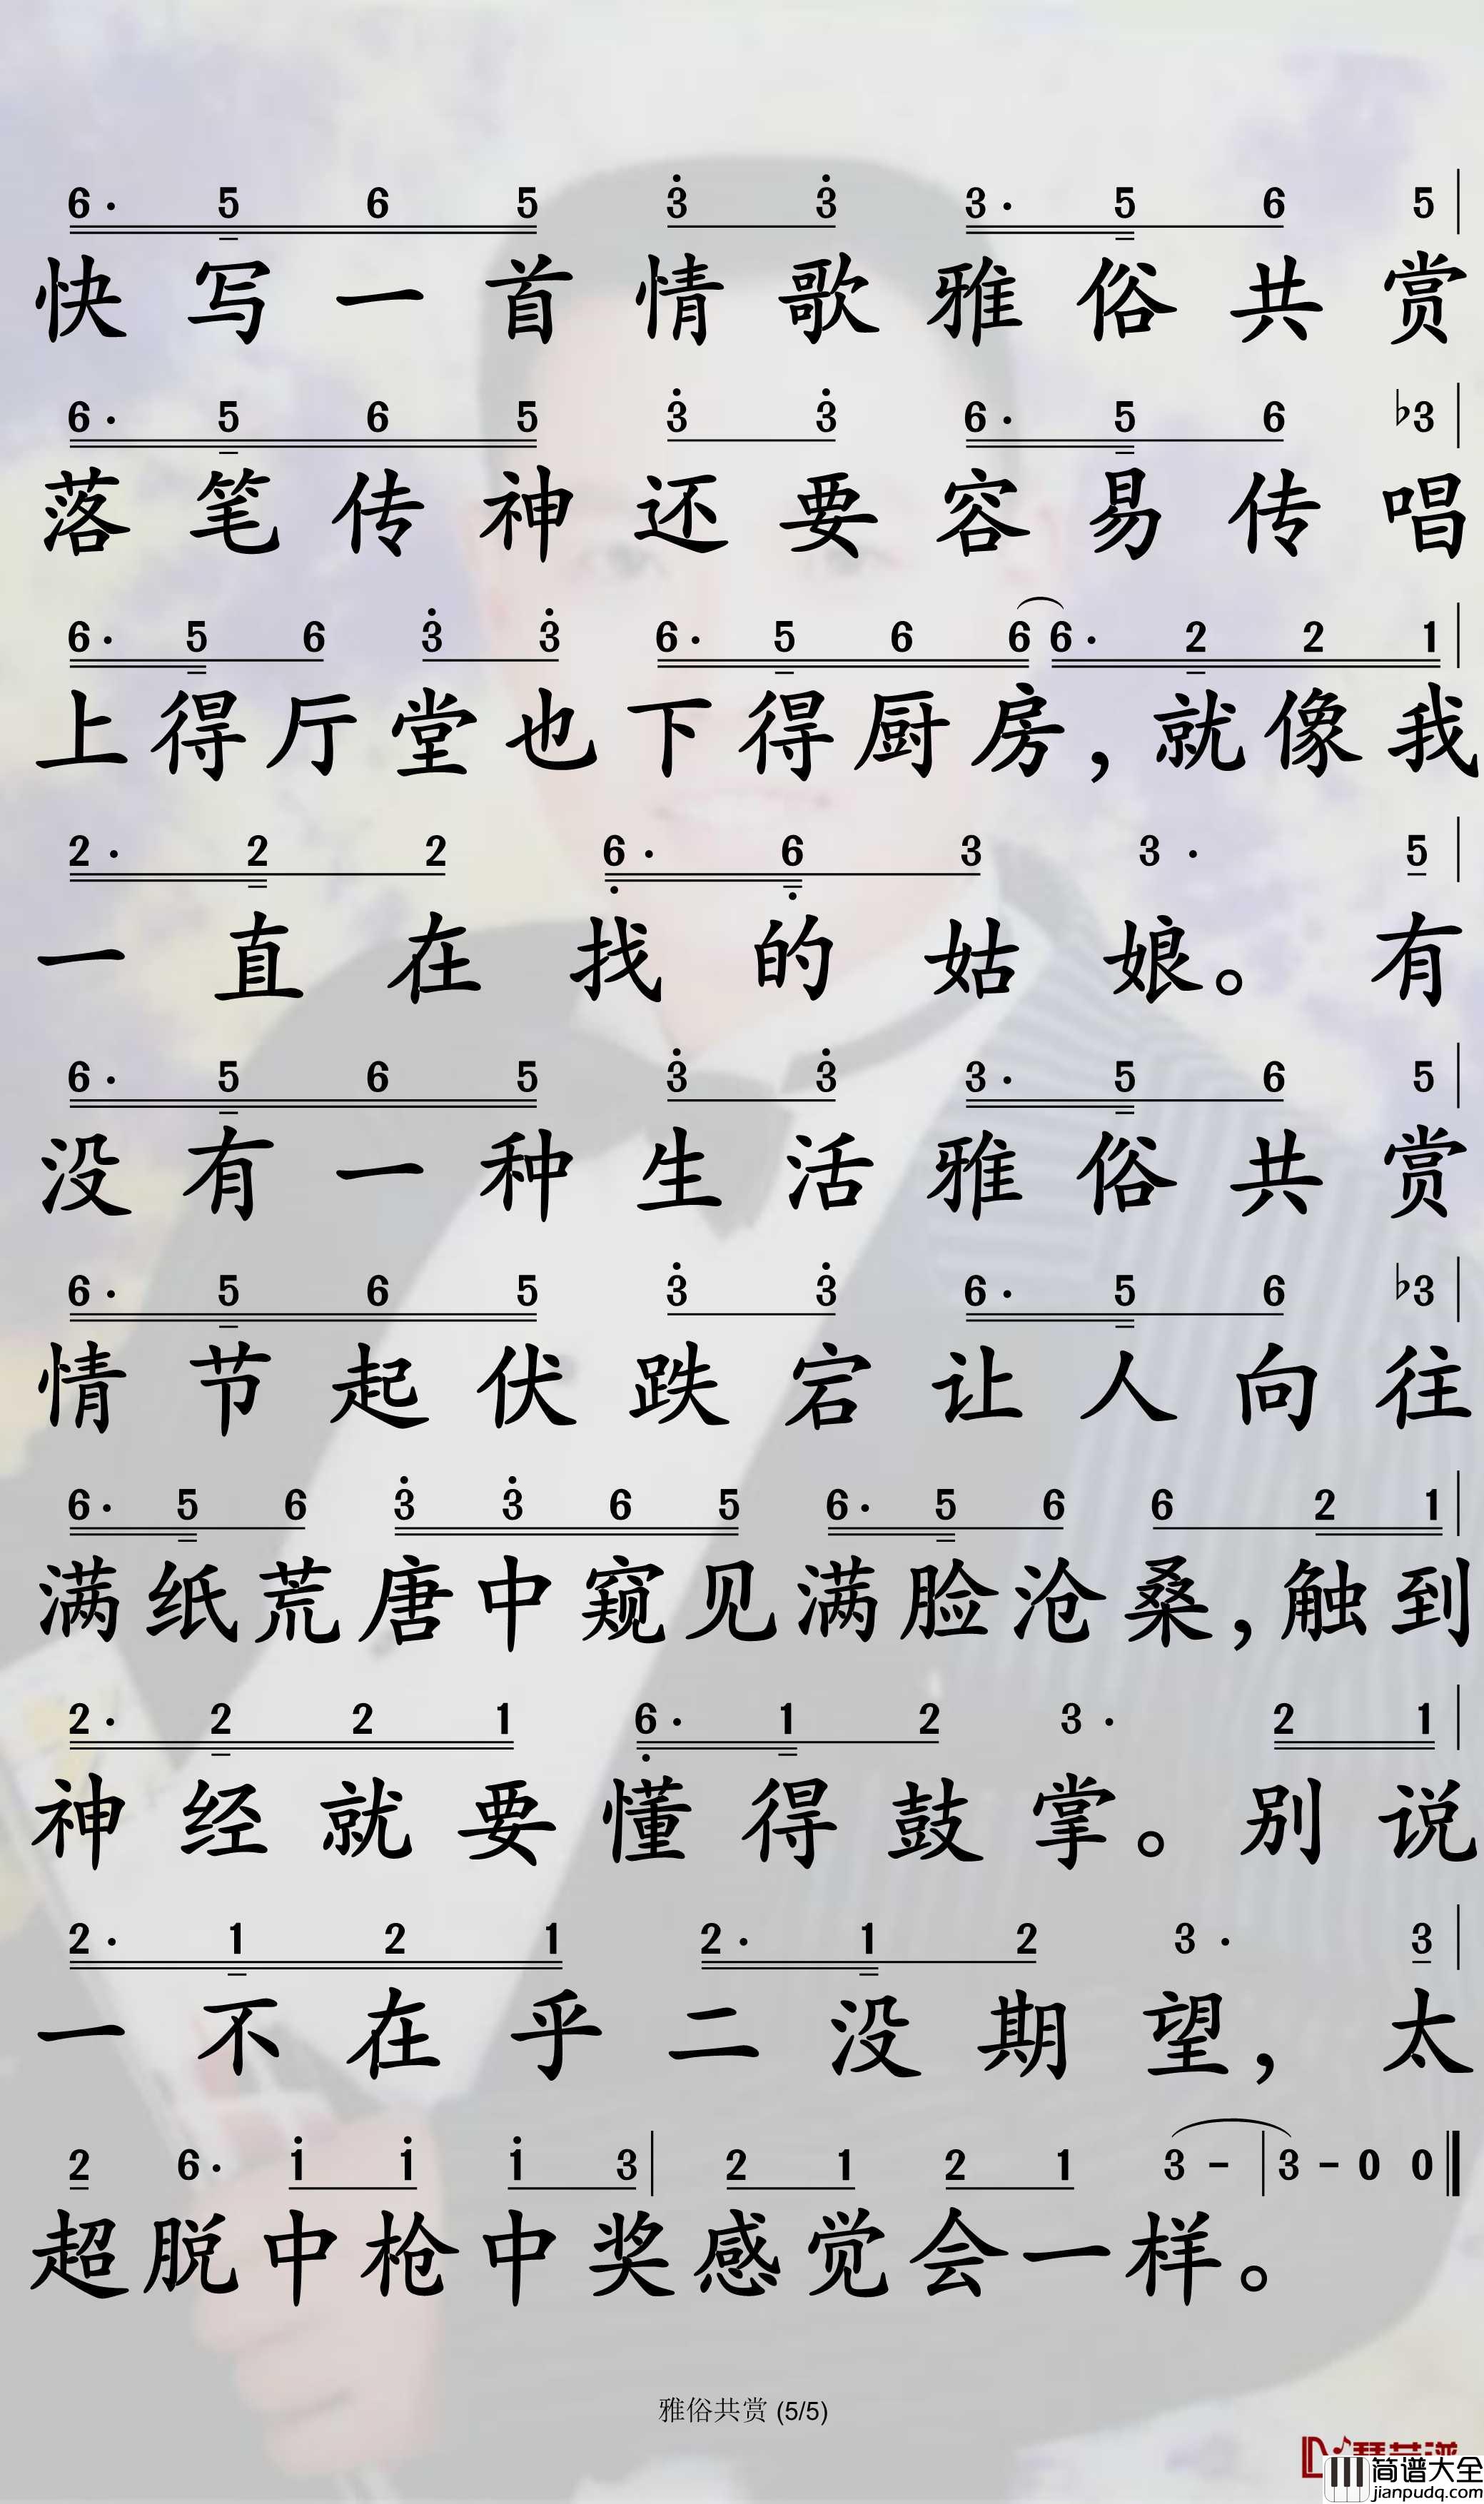 6· 5 6 5 3 3 3· 5 6 5
快写一首情歌雅俗共赏
6· 5 6 5 3 3 6· 5 6 ♭3
落笔传神还要容易传唱
6· 5 6 3 3 6· 5 6 6 6· 2 2 1
上得厅堂也下得厨房，就像我
2· 2 2 6· 6 3 3· 5
一直在找的姑娘。有
6· 5 6 5 3 3 3· 5 6 5
没有一种生活雅俗共赏
6· 5 6 5 3 3 6· 5 6 ♭3
情节起伏跌宕让人向往
6· 5 6 3 3 6 5 6· 5 6 6 2 1
满纸荒唐中窥见满脸沧桑，触到
2· 2 2 1 6· 1 2 3· 2 1
神经就要懂得鼓掌。别说
2· 1 2 1 2· 1 2 3· 3
一不在乎二没期望，太
2 6· 1 1 1 3 2 1 2 1 3 - 3 - 0 0
超脱中枪中奖感觉会一样。
雅俗共赏 (5/5)
简谱大全
jianpudq.com